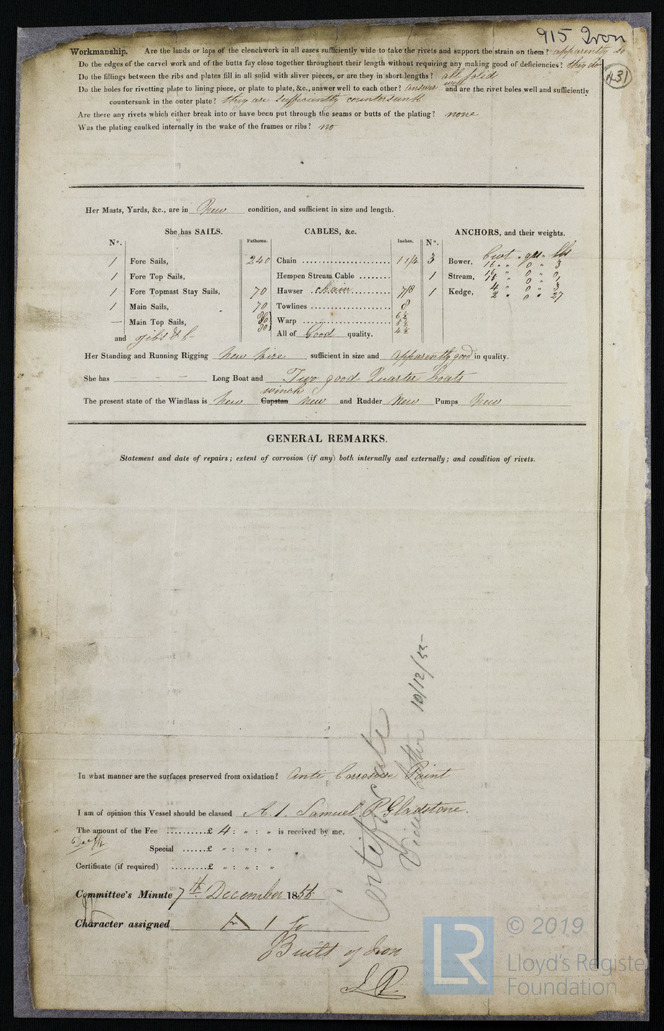 915 Iron
431
Workmanship. Are the lands or laps of the clenchwork in all cases sufficiently wide to take the rivets and support the strain on them? apparently so
Do the edges of the carvel work and of the butts fay close together throughout their length without requiring any making good of deficiencies? they do
Do the fillings between the ribs and plates fill in all solid with sliver pieces, or are they in short lengths? all solid
Do the holes for rivetting plate to lining piece, or plate to plate, &c., answer well to each other? answer well and are the rivet holes well and sufficiently
countersunk in the outer plate? they are sufficiently countersunk
Are there any rivets which either break into or have been put through the seams or butts of the plating? none
Was the plating caulked internally in the wake of the frames or ribs? no
Her Masts, Yards, &c., are in New condition, and sufficient in size and length.
She has SAILS. CABLES, &c. ANCHORS, and their weights.
N°. Fathoms. Inches. N°.
1 Fore Sails, 240 Chain 1 1/4 3 Bower,
1 Fore Top Sails, Hempen Stream Cable 1 Stream,
1 Fore Topmast Stay Sails, 70 Hawser chain 7/8 1 Kedge,
1 Main Sails, 70 Towlines 8
— Main Top Sails, Warp
and jibs &c All of Good quality.
Her Standing and Running Rigging New wire sufficient in size and apparently good in quality.
She has Long Boat and Two good Quarter boats
The present state of the Windlass is New Capstan winch New and Rudder New Pumps New
GENERAL REMARKS.
Statement and date of repairs; extent of corrosion (if any) both internally and externally; and condition of rivets.
In what manner are the surfaces preserved from oxidation? Anti Corrosive Paint
I am of opinion this Vessel should be classed A.1. Samuel P Gladstone.
The amount of the Fee £ 4 : " : " is received by me.
Special £ " : " : "
Certificate (if required) £ " : " : "
Committee's Minute 7th December 185
Character assigned A 1 for
Built of Iron
Certificate
10/12/55
© 2019
LR
Lloyd's Registe
Foundation